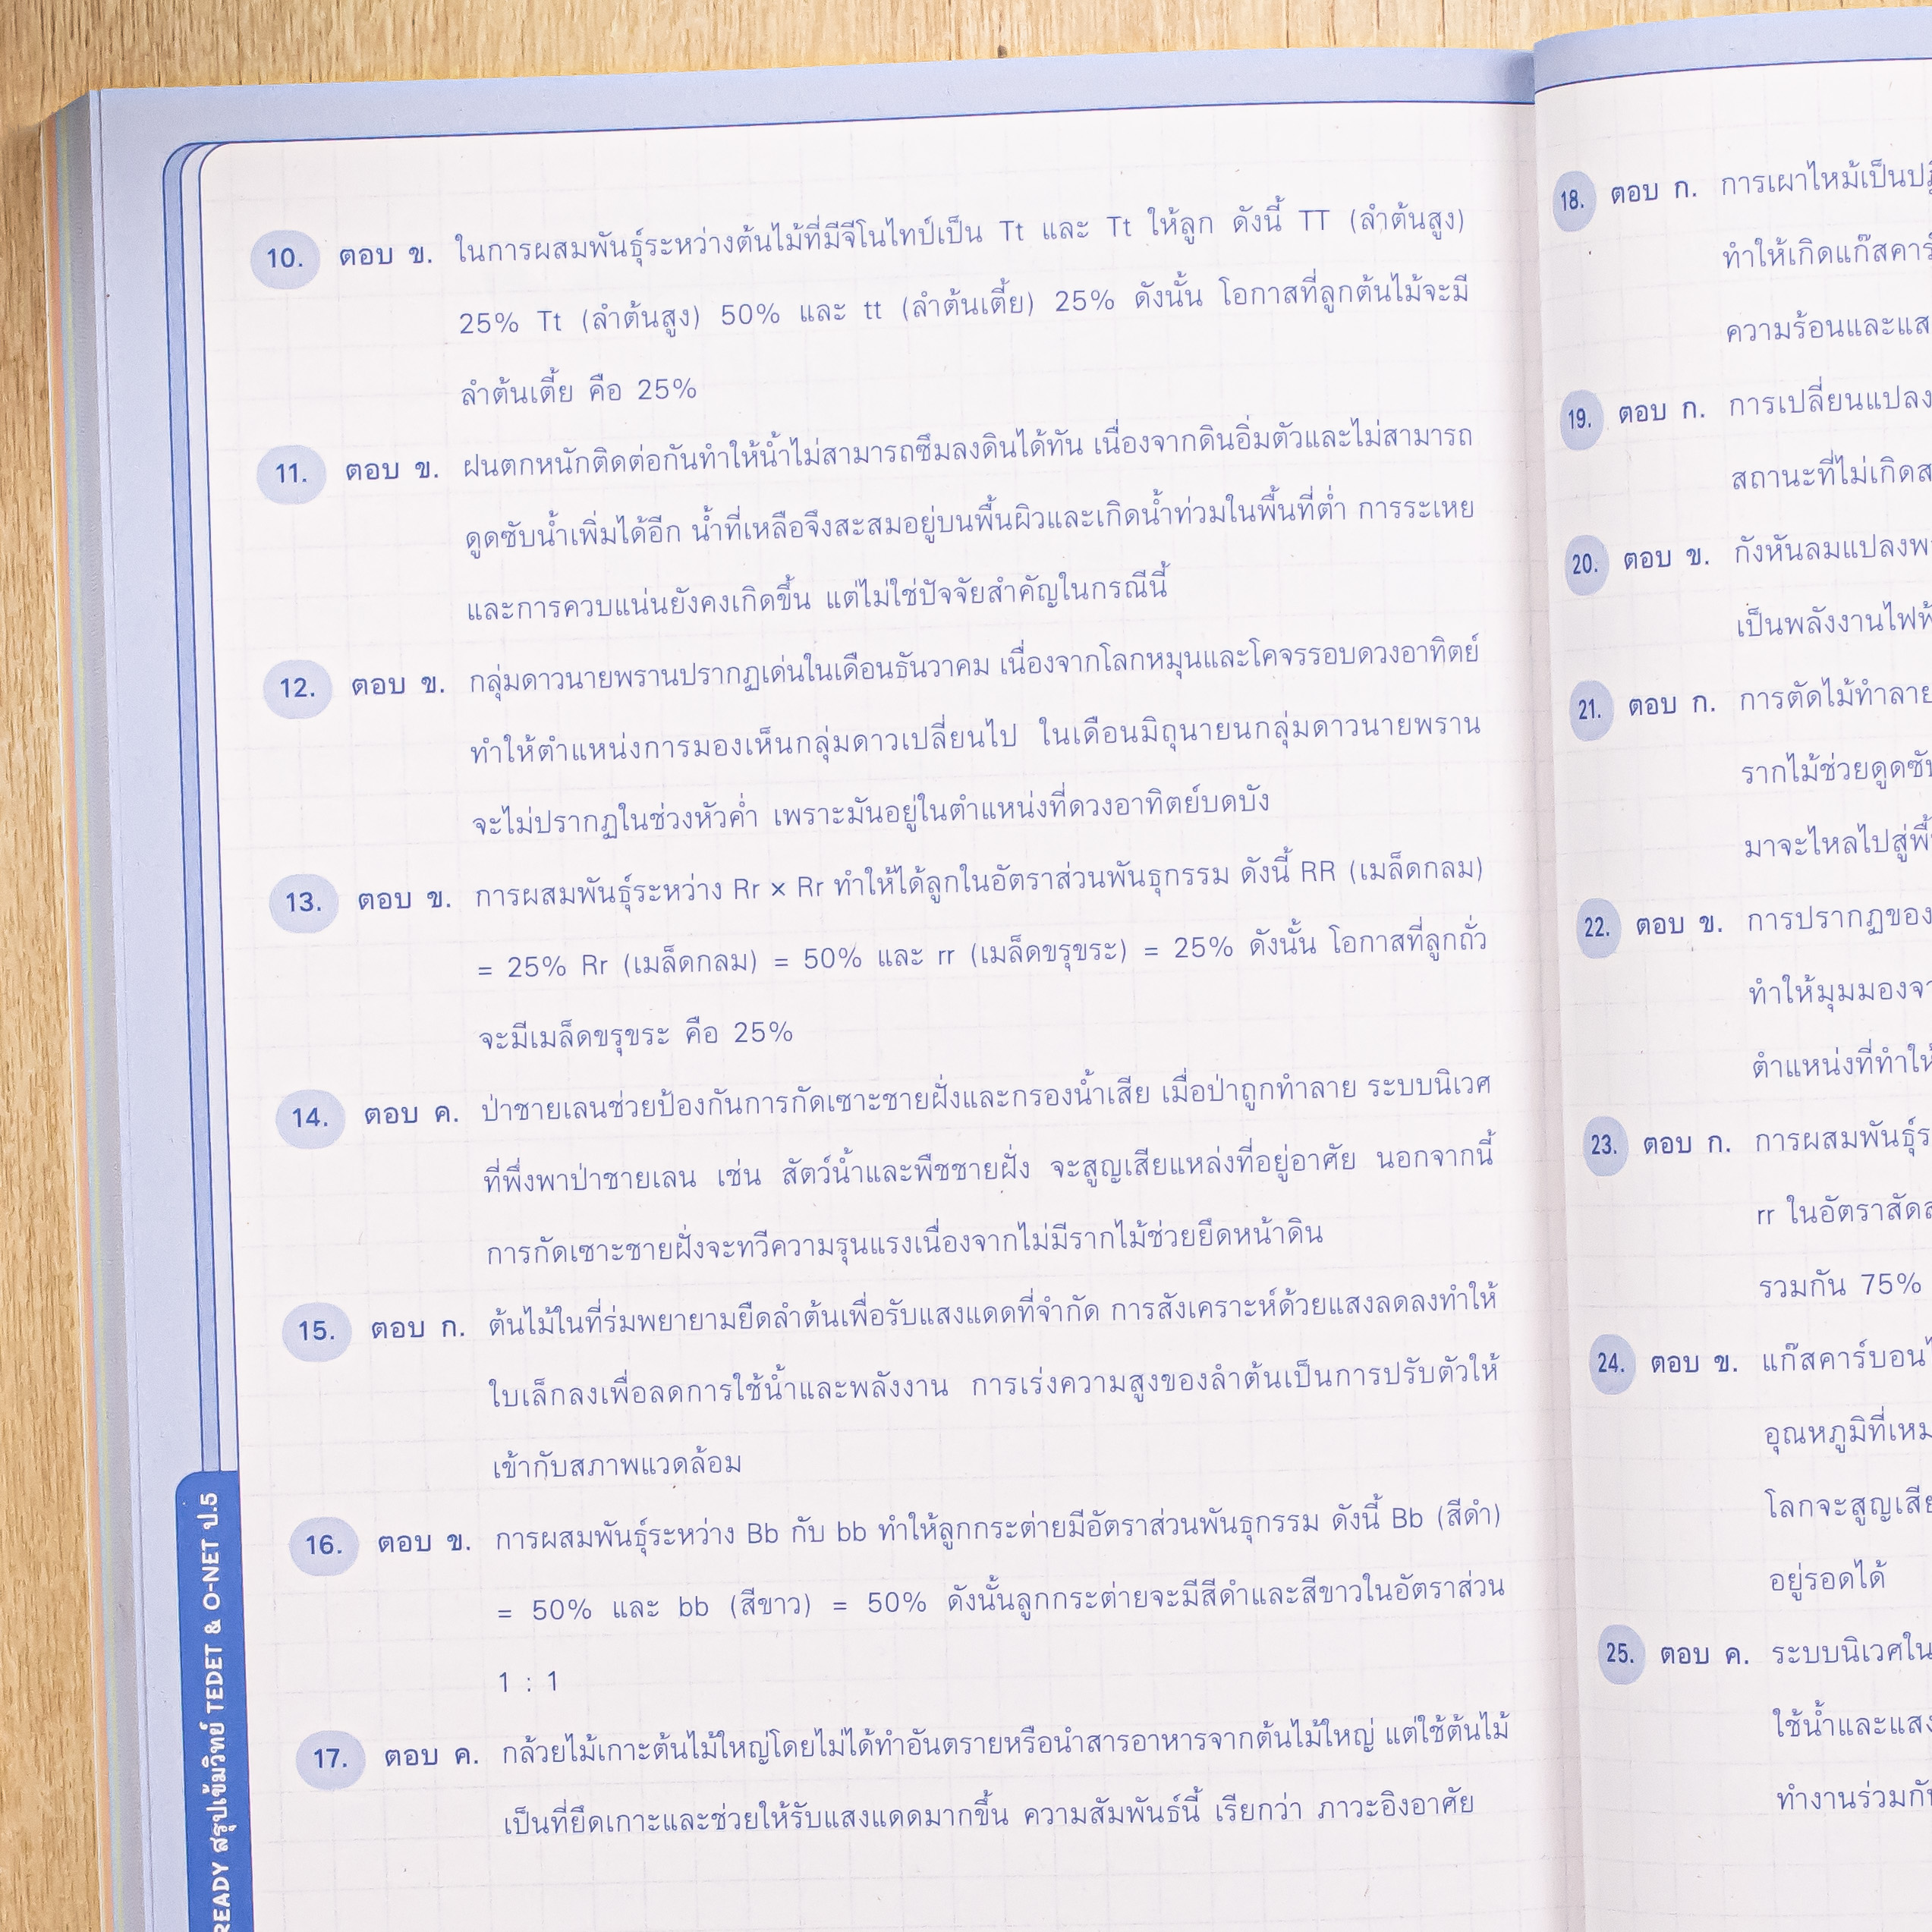 10. ตอบ ข. ในการผสมพันธุ์ระหว่างต้นไม้ที่มีจีโนไทป์เป็น Tt และ Tt ให้ลูก ดังนี้ TT (ลำต้นสูง)
25% Tt (ลำต้นสูง) 50% และ tt (ลำต้นเตี้ย) 25% ดังนั้น โอกาสที่ลูกต้นไม้จะมี
ลำต้นเตี้ย คือ 25%
11. ตอบ ข. ฝนตกหนักติดต่อกันทำให้น้ำไม่สามารถซึมลงดินได้ทัน เนื่องจากดินอิ่มตัวและไม่สามารถ
ดูดซับน้ำเพิ่มได้อีก น้ำที่เหลือจึงสะสมอยู่บนพื้นผิวและเกิดน้ำท่วมในพื้นที่ต่ำ การระเหย
และการควบแน่นยังคงเกิดขึ้น แต่ไม่ใช่ปัจจัยสำคัญในกรณีนี้
12. ตอบ ข. กลุ่มดาวนายพรานปรากฏเด่นในเดือนธันวาคม เนื่องจากโลกหมุนและโคจรรอบดวงอาทิตย์
ทำให้ตำแหน่งการมองเห็นกลุ่มดาวเปลี่ยนไป ในเดือนมิถุนายนกลุ่มดาวนายพราน
จะไม่ปรากฏในช่วงหัวค่ำ เพราะมันอยู่ในตำแหน่งที่ดวงอาทิตย์บดบัง
13. ตอบ ข. การผสมพันธุ์ระหว่าง Rr × Rr ทำให้ได้ลูกในอัตราส่วนพันธุกรรม ดังนี้ RR (เมล็ดกลม)
= 25% Rr (เมล็ดกลม) = 50% และ rr (เมล็ดขรุขระ) = 25% ดังนั้น โอกาสที่ลูกถั่ว
จะมีเมล็ดขรุขระ คือ 25%
14. ตอบ ค. ป่าชายเลนช่วยป้องกันการกัดเซาะชายฝั่งและกรองน้ำเสีย เมื่อป่าถูกทำลาย ระบบนิเวศ
ที่พึ่งพาป่าชายเลน เช่น สัตว์น้ำและพืชชายฝั่ง จะสูญเสียแหล่งที่อยู่อาศัย นอกจากนี้
การกัดเซาะชายฝั่งจะทวีความรุนแรงเนื่องจากไม่มีรากไม้ช่วยยึดหน้าดิน
15. ตอบ ก. ต้นไม้ในที่ร่มพยายามยืดลำต้นเพื่อรับแสงแดดที่จำกัด การสังเคราะห์ด้วยแสงลดลงทำให้
ใบเล็กลงเพื่อลดการใช้น้ำและพลังงาน การเร่งความสูงของลำต้นเป็นการปรับตัวให้
เข้ากับสภาพแวดล้อม
16. ตอบ ข. การผสมพันธุ์ระหว่าง Bb กับ bb ทำให้ลูกกระต่ายมีอัตราส่วนพันธุกรรม ดังนี้ Bb (สีดำ)
= 50% และ bb (สีขาว) = 50% ดังนั้นลูกกระต่ายจะมีสีดำและสีขาวในอัตราส่วน
1 : 1
17. ตอบ ค. กล้วยไม้เกาะต้นไม้ใหญ่โดยไม่ได้ทำอันตรายหรือนำสารอาหารจากต้นไม้ใหญ่ แต่ใช้ต้นไม้
เป็นที่ยึดเกาะและช่วยให้รับแสงแดดมากขึ้น ความสัมพันธ์นี้ เรียกว่า ภาวะอิงอาศัย
READY สรุปเข้มวิทย์ TEDET & O-NET ป.5
18. ตอบ ก. การเผาไหม้เป็น
ทำให้เกิดแก๊ส
ความร้อนและ
19. ตอบ ก. การเปลี่ยนแปลง
สถานะที่ไม่เกิด
20. ตอบ ข. กังหันลมแปลง
เป็นพลังงาน
21. ตอบ ก. การตัดไม้ทำลาย
รากไม้ช่วย
มาจะไหลไปสู่
22. ตอบ ข. การปรากฏของ
ทำให้มุมมอง
ตำแหน่งที่ทำให้
23. ตอบ ก. การผสมพันธุ์
rr ในอัตรา
รวมกัน 75%
24. ตอบ ข. แก๊สคาร์บอน
อุณหภูมิที่
โลกจะสูญเสีย
อยู่รอดได้
25. ตอบ ค. ระบบนิเวศใน
ใช้น้ำและแสง
ทำงานร่วม